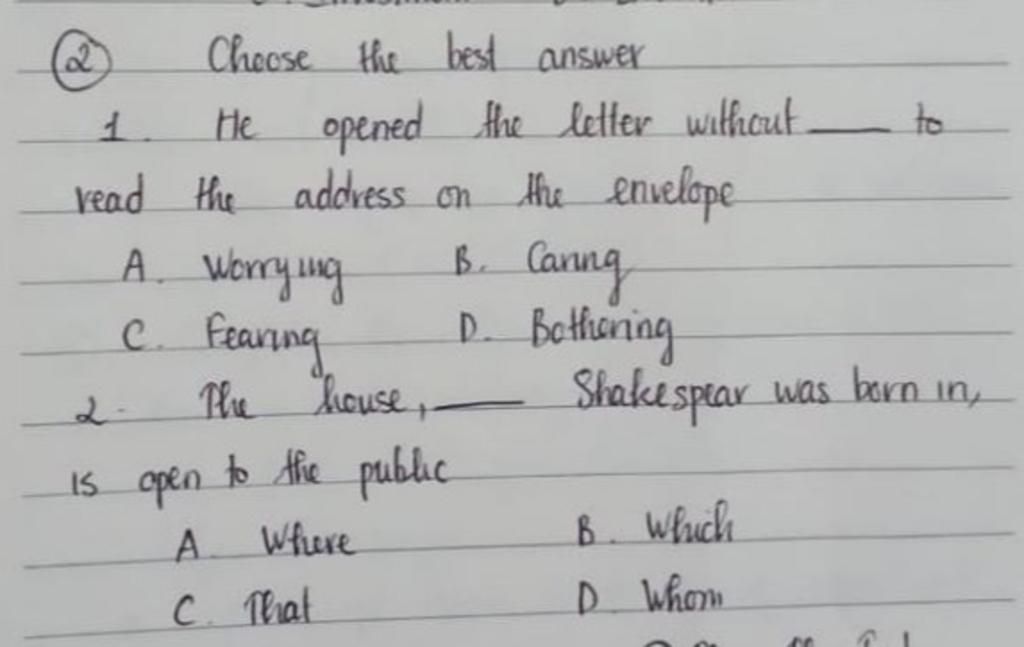 ② Choose the best answer
1. He opened the letter without ___ to
read the address on the envelope
A. Worrying B. Caring
C. Fearing D. Bothering
2. The house, ___ Shakespear was born in,
is open to the public
A. Where B. Which
C. That D. Whom